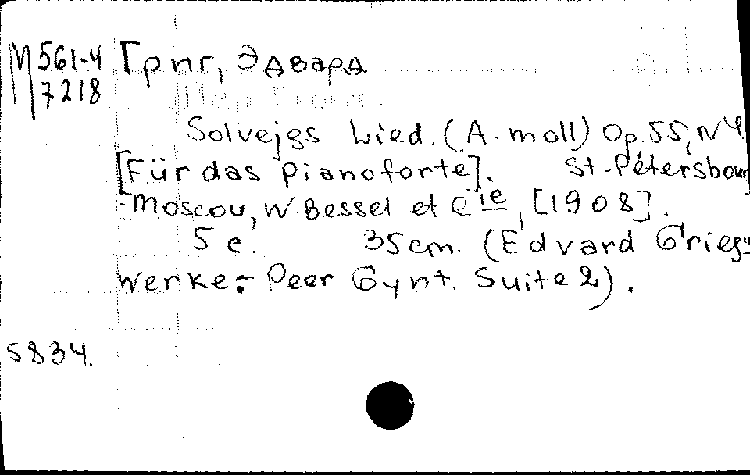 М 561-4 Григ, Эдвард
7218
Solvejgs Lied. (A-moll) Op.55, N4
[Für das Pianoforte]. St-Pétersbourg
-Moscou, W Bessel et Cie, [1908].
5 c. 35 cm. (Edvard Grieg
Werke: Peer Gynt. Suite 2).
5834.